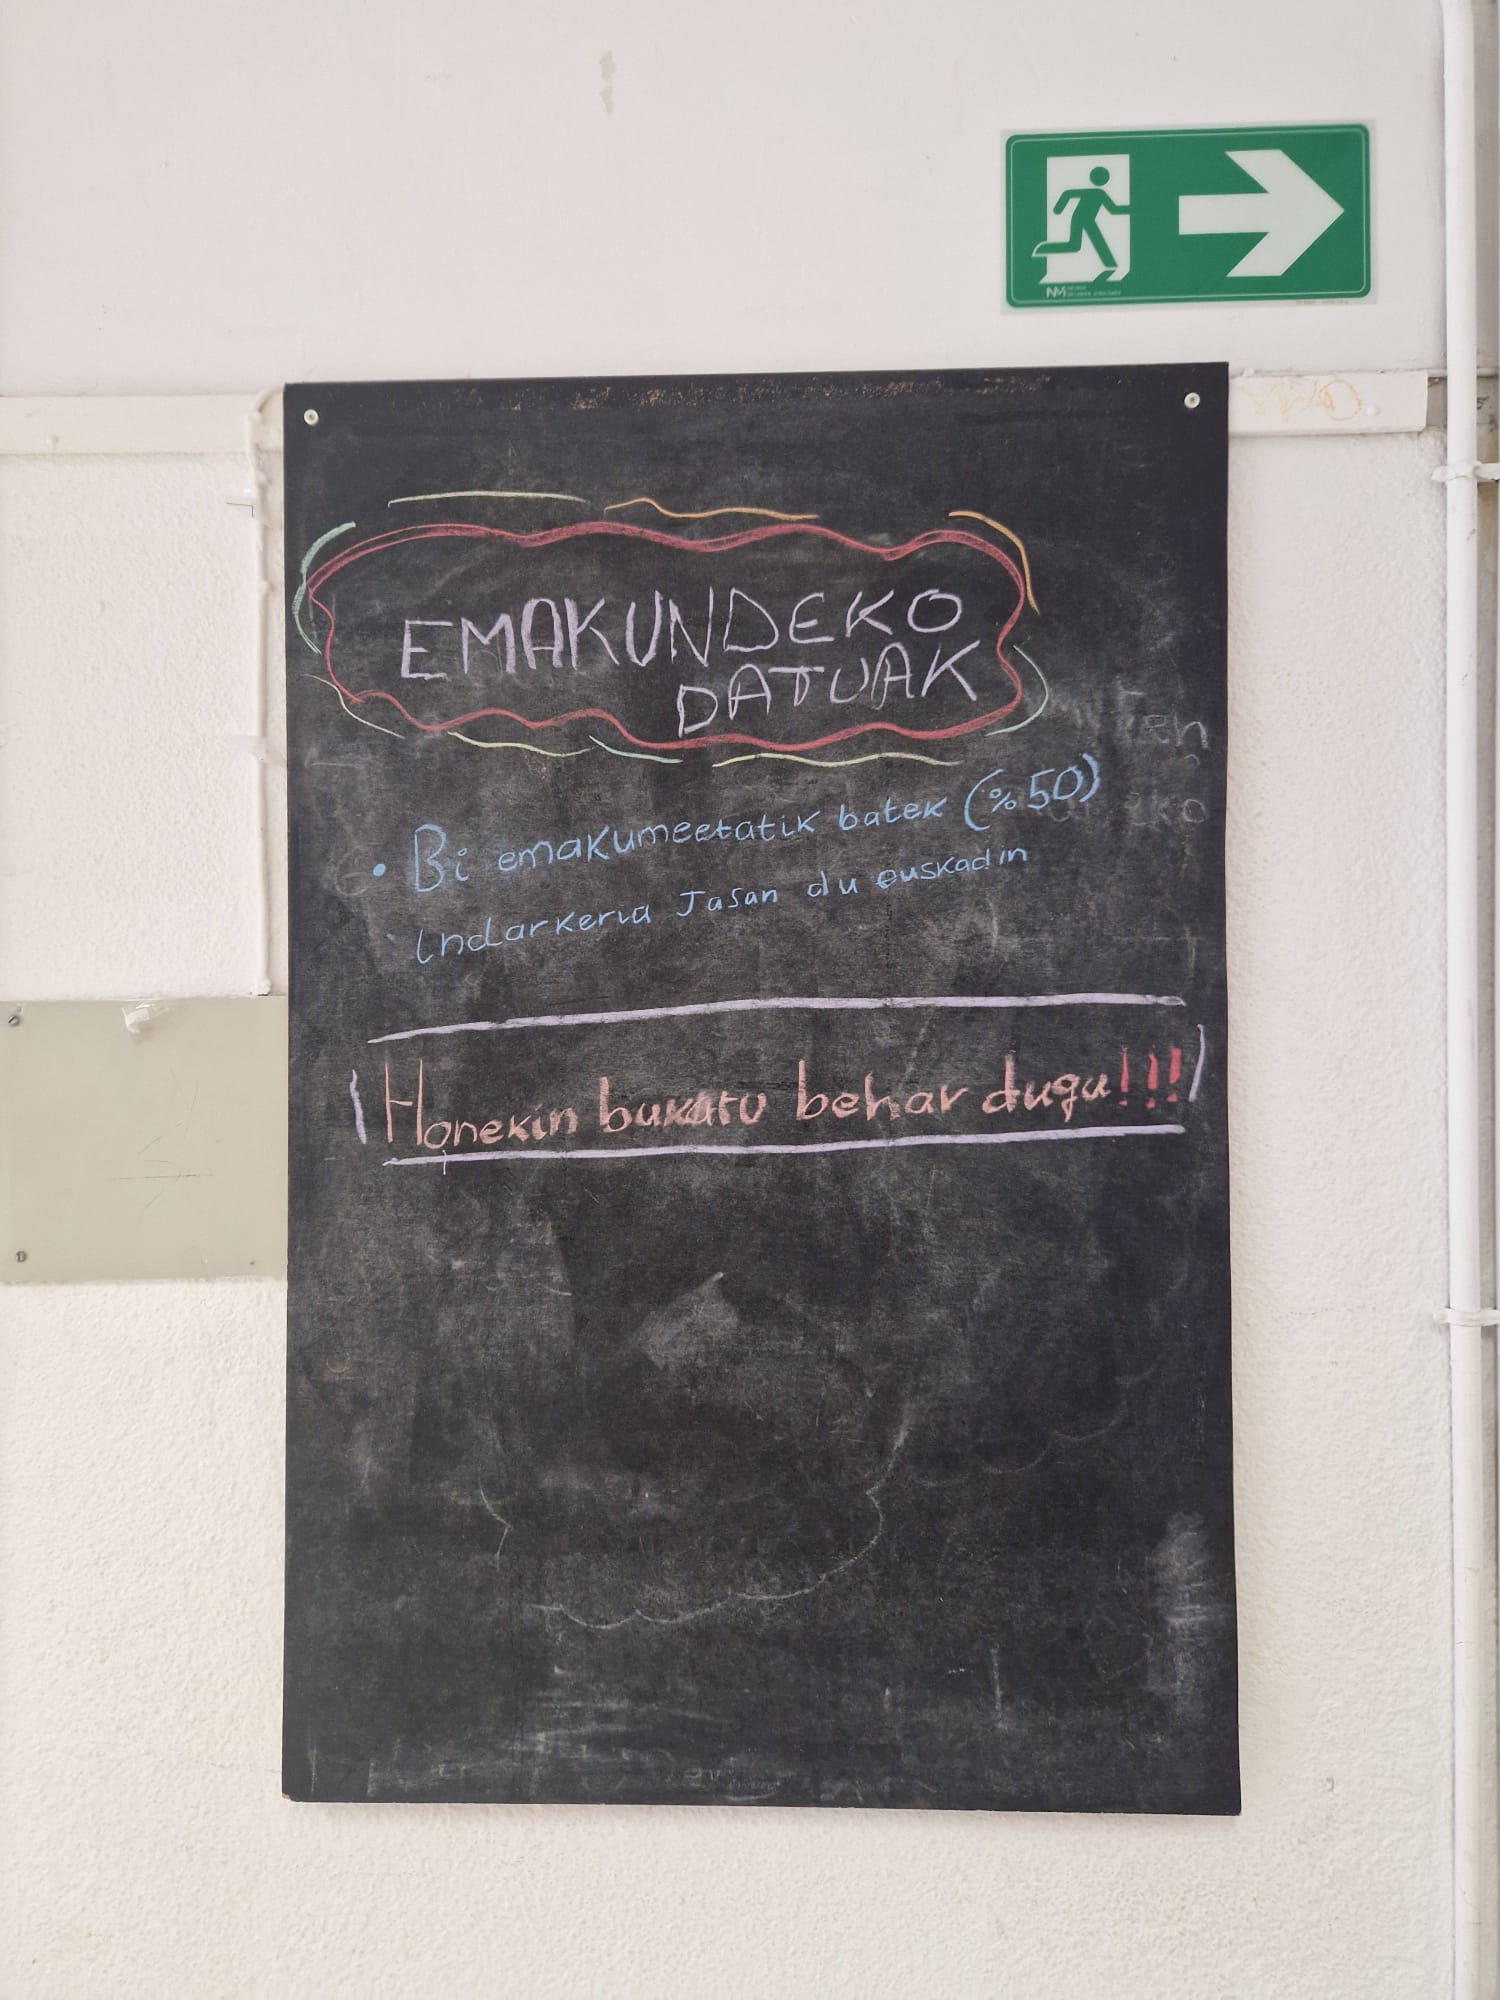 EMAKUNDEKO
DATUAK
• Bi emakumeetatik batek (%50)
indarkeria Jasan du euskadin
Honekin bukatu behar dugu!!!